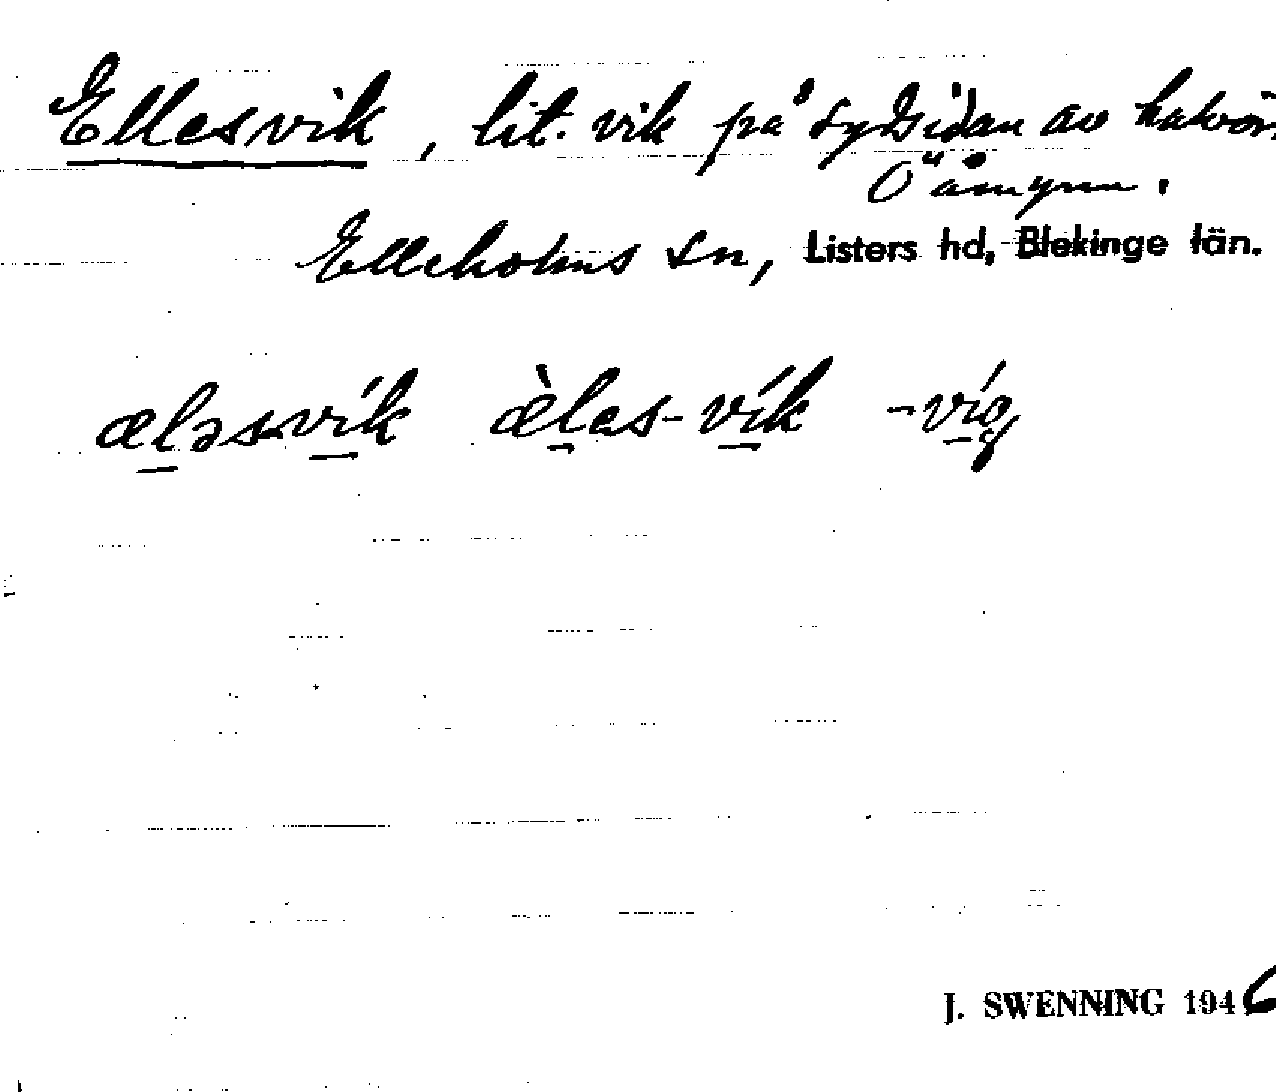 Ellesvik, lit. vik på sydsidan av halvön
Öämynn.
Elleholms sn, Listers hd, Blekinge län.
æləsvík æ̀les-vík -víg
J. SWENNING 1946